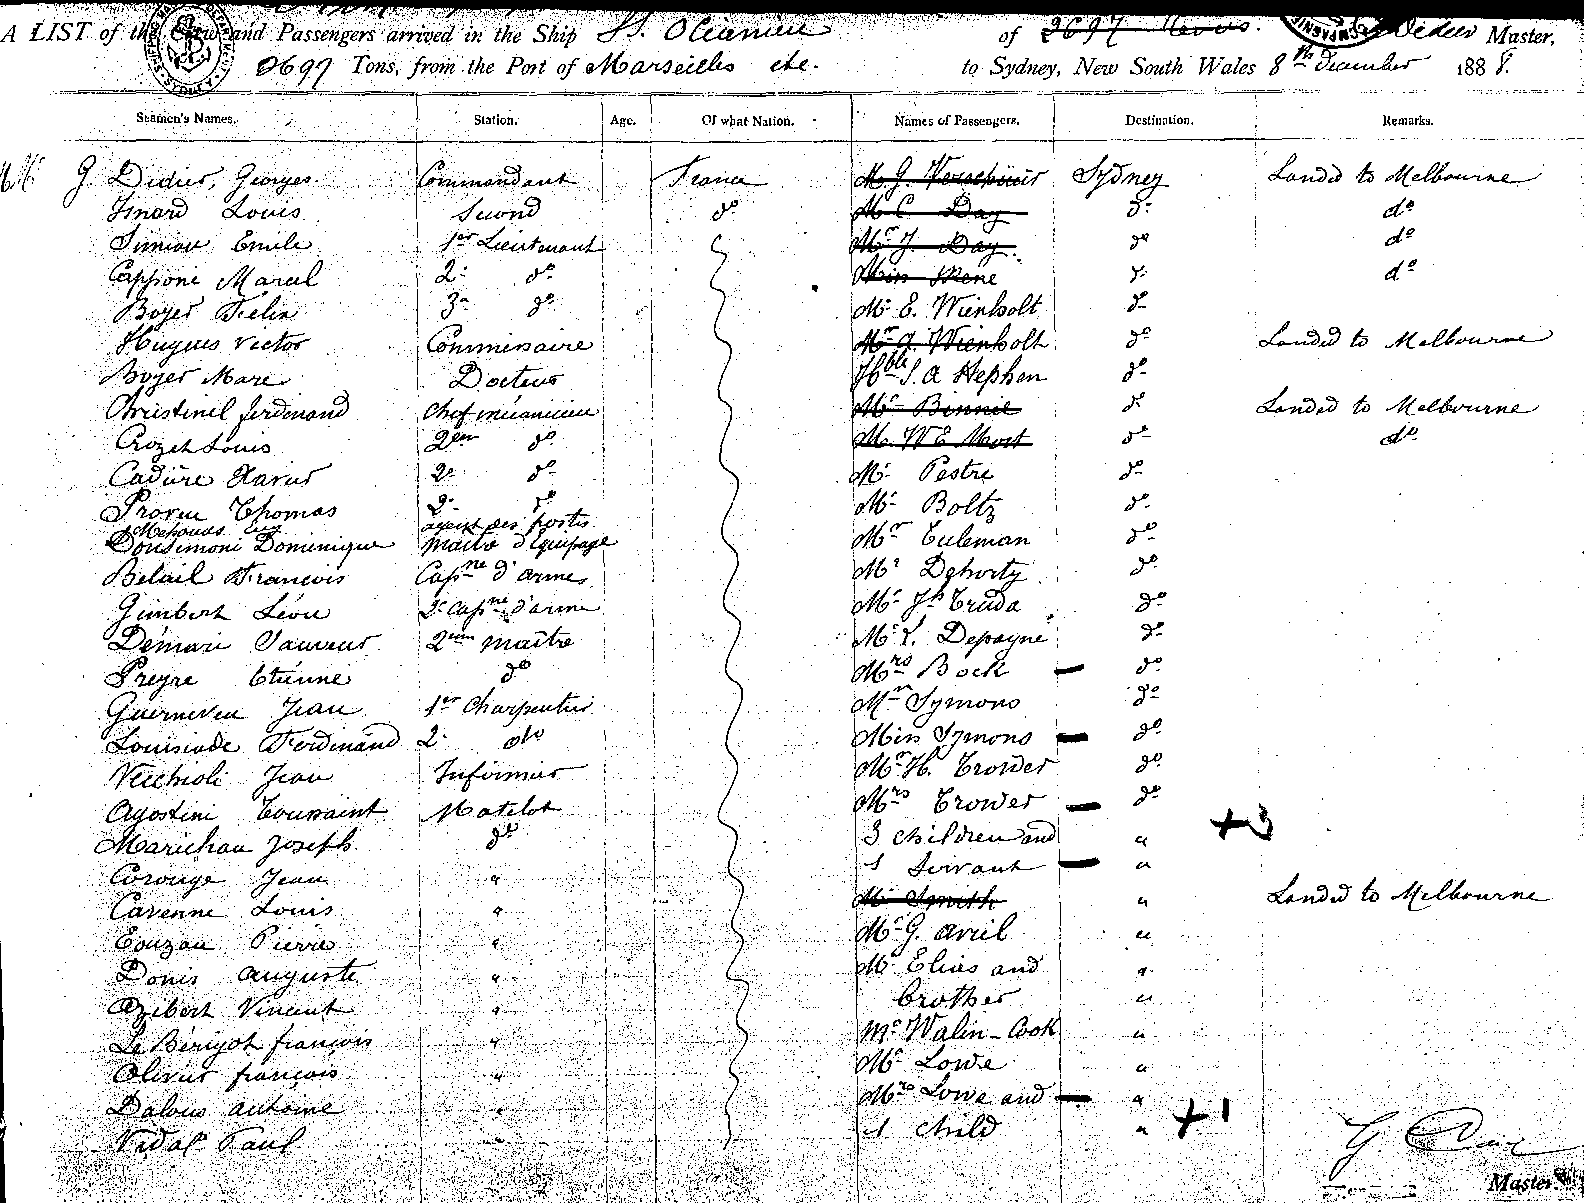 A LIST of the Crew and Passengers arrived in the Ship St. Océanien of 2697 Master,
2697 Tons, from the Port of Marseilles etc. to Sydney, New South Wales 8th December 1888.
Seamen's Names. Station. Age. Of what Nation. Names of Passengers. Destination. Remarks.
G Didier, Georges Commandant France M G. Sydney Landed to Melbourne
Isnard Louis Second do M C Day do do
Simian Emile 1er Lieutenant Mr J. Day do do
Cappone Marcel 2e do Miss Mene do do
Boyer Felix 3e do Mr E. Wienholt do
Hugues Victor Commissaire Mr A. Wienholt do Landed to Melbourne
Boyer Marc Docteur Hble S. A Stephen do
Christinel ferdinand Chef mécanicien Mr Binnie do Landed to Melbourne
Crozet Louis 2em do M. W E Mort do do
Cadière Xavier 2e do Mr Pestre do
Thomas 2e do Mr Boltz do
agent des postes
Donsimoni Dominique maître d'équipage Mr Tuleman do
Belail Francois Capne d'armes Mr Dehorty do
Gimbert Léon 2e capne d'arme Mr Jh Truda do
Démari Sauveur 2em maître Mr L. Depayne do
Preyre Etienne do Mrs Bock do
Guerneveu Jean 1er Charpentier Mr Symons do
Louisiade Ferdinand 2e do Miss Symons do
Vecchioli Jean Infirmier Mr H. Crowder do
Agostini Toussaint Matelot Mrs Crower do
Marichau Joseph do 3 children and " +3
Corouge Jean " 1 Servant "
Cavenne Louis " Mr Smith " Landed to Melbourne
Touzau Pierre " Mr G. Avril "
Donis Auguste " Mr Elias and "
Azibert Vincent " brother "
Le Bérigot françois " Mr Walin-Cook "
Olivier françois " Mr Lowe "
Dalous Antoine " Mrs Lowe and "
Vidal Paul 1 child " +1
G.
Master